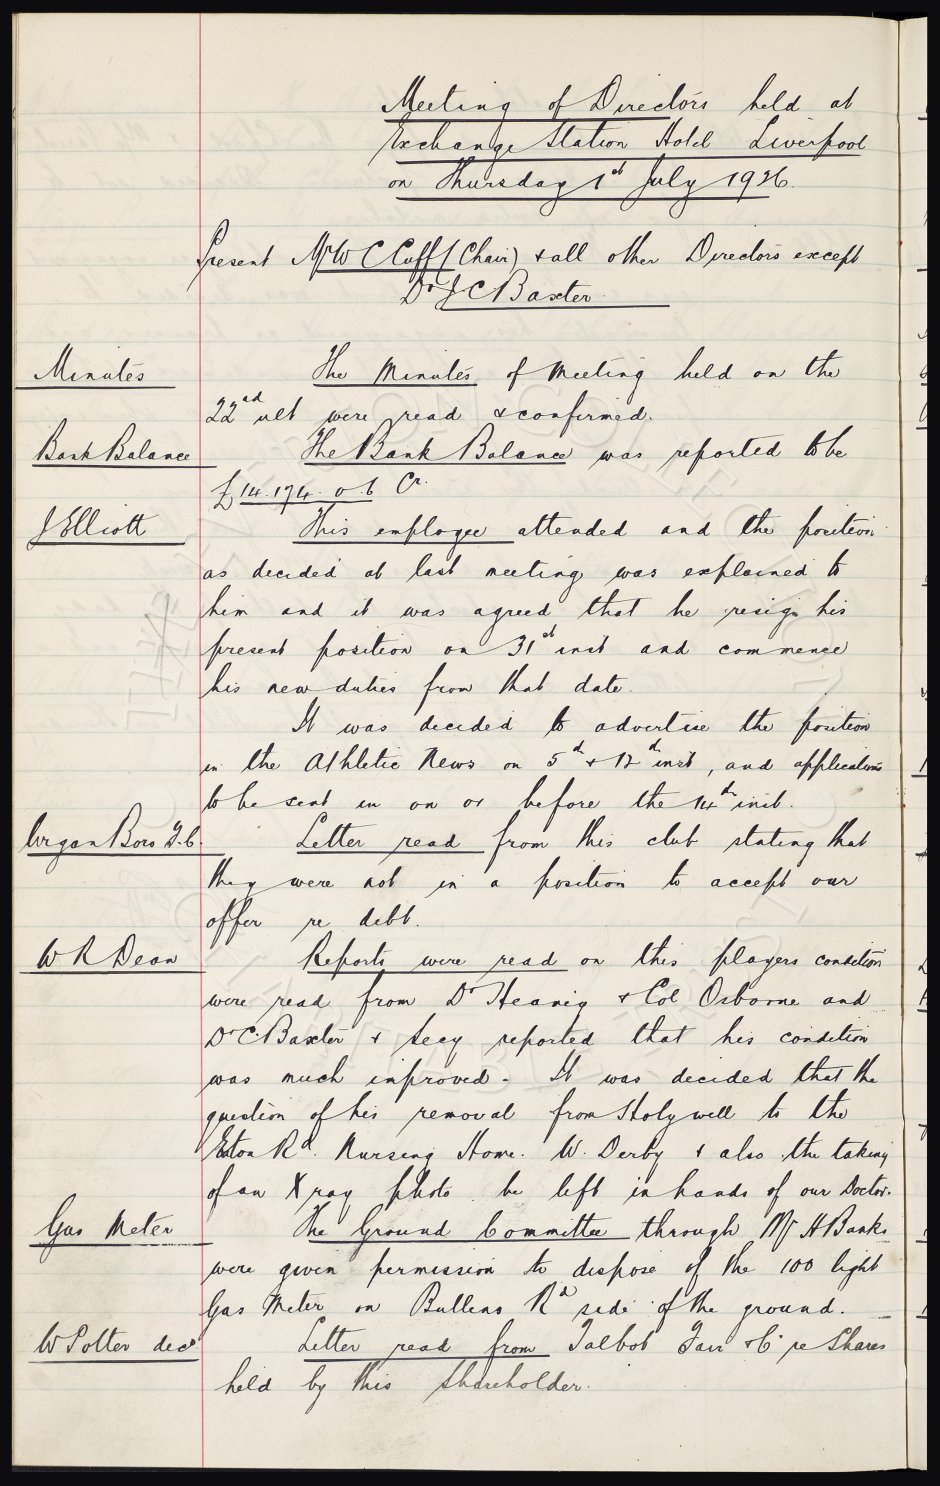 Meeting of Directors held at
Exchange Station Hotel Liverpool
on Thursday 1st July 1926.
Present Mr W C Cuff (Chair) & all other Directors except
Dr J C Baxter.
Minutes The Minutes of Meeting held on the
22nd ult were read & confirmed.
Bank Balance The Bank Balance was reported to be
£14.174. 0. 6 Cr.
J Elliott This employee attended and the position
as decided at last meeting was explained to
him and it was agreed that he resign his
present position on 31st inst and commence
his new duties from that date.
It was decided to advertise the position
in the Athletic News on 5th & 12th inst, and applications
to be sent in on or before the 14th inst.
Wigan Boro F.C. Letter read from this club stating that
they were not in a position to accept our
offer re debt.
W R Dean Reports were read on this players condition
were read from Dr Heanig & Col Osborne and
Dr C. Baxter & Secy reported that his condition
was much improved. It was decided that the
question of his removal from Holywell to the
Eton Rd. Nursing Home. W. Derby & also the taking
of an X ray photo be left in hands of our Doctor.
Gas Meter The Ground Committee through Mr H Banks
were given permission to dispose of the 100 light
Gas Meter on Bullens Rd side of the ground.
W Potter decd Letter read from Talbot Fair & Co re Shares
held by this Shareholder.